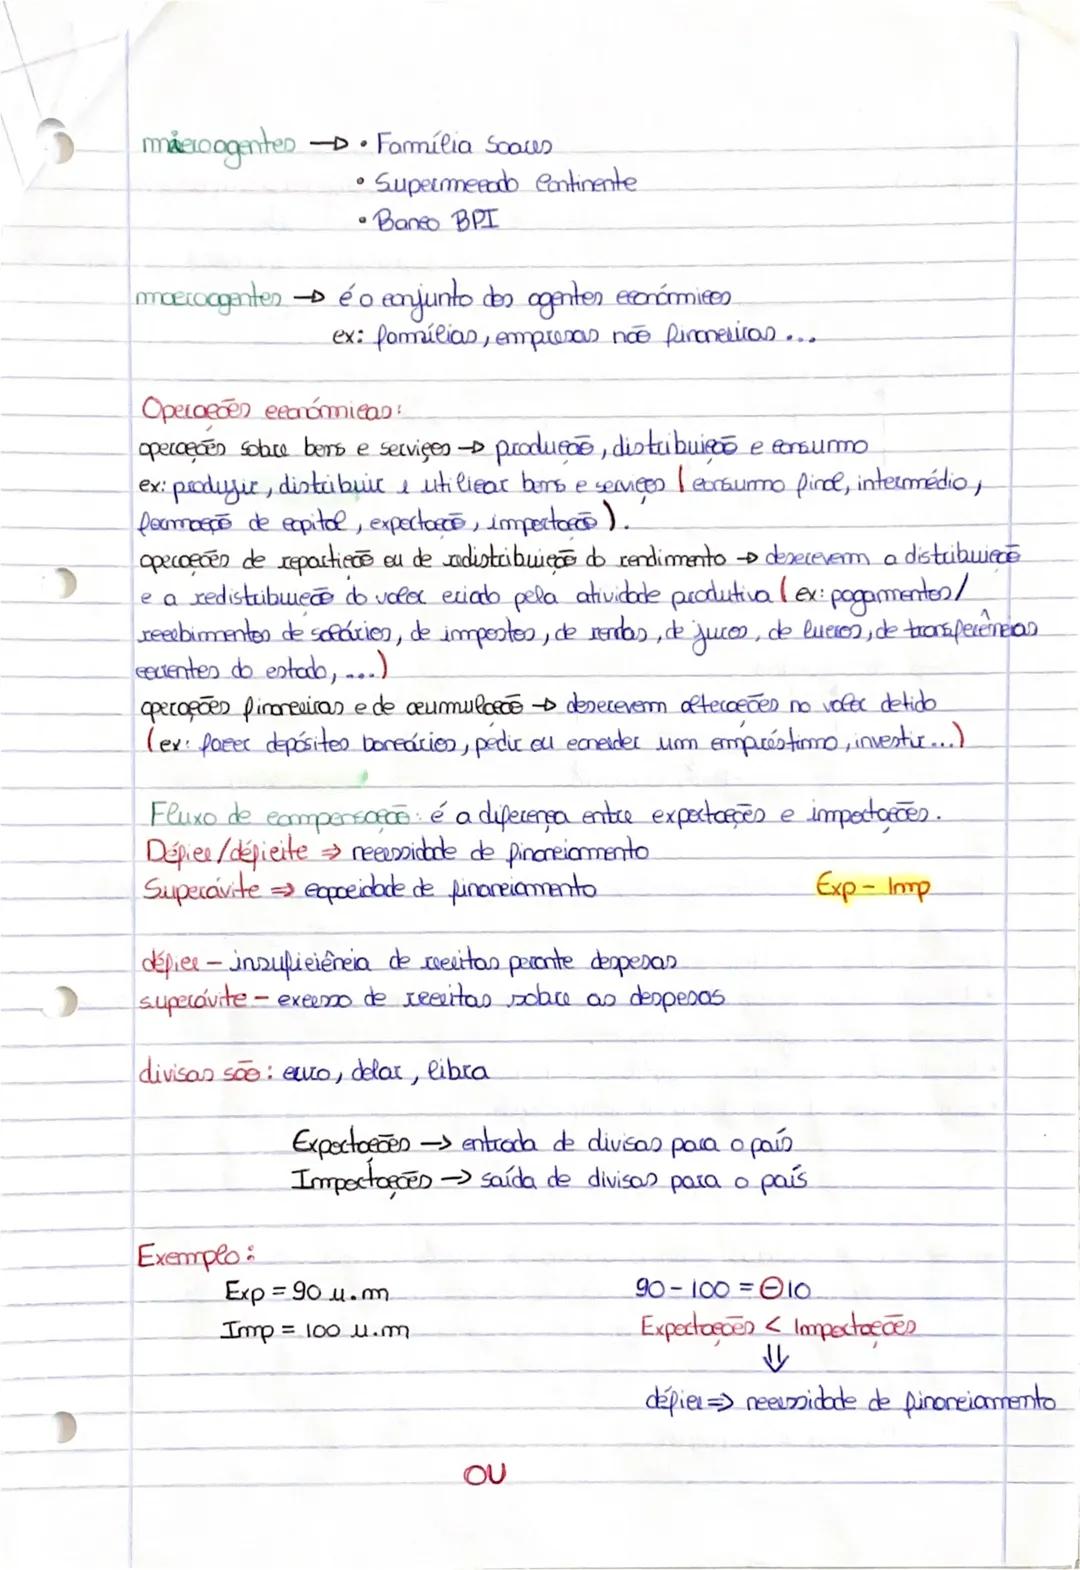 microagentes → • Família Soares
• Supermercado Continente
• Banco BPI
macroagentes → é o conjunto dos agentes económicos
ex: famílias, empresas não financeiras ...
Operações económicas:
operações sobre bens e serviços → produção, distribuição e consumo
ex: produzir, distribuir e utilizar bens e serviços (consumo final, intermédio,
formação de capital, exportação, importação).
operações de repartição ou de redistribuição do rendimento → descrevem a distribuição
e a redistribuição do valor criado pela atividade produtiva (ex: pagamentos/
recebimentos de salários, de impostos, de rendas, de juros, de lucros, de transferências
correntes do estado, ...)
operações financeiras e de acumulação → descrevem alterações no valor detido
(ex: fazer depósitos bancários, pedir ou conceder um empréstimo, investir...)
Fluxo de compensação: é a diferença entre exportações e importações.
Défice/déficite ⇒ necessidade de financiamento
Superávite ⇒ capacidade de financiamento Exp - Imp
défice - insuficiência de receitas perante despesas
superávite - excesso de receitas sobre as despesas
divisas são: euro, dolar, libra
Exportações → entrada de divisas para o país
Importações → saída de divisas para o país
Exemplo:
Exp = 90 u.m 90 - 100 = ⊖10
Imp = 100 u.m Exportações < Importações
⇓
défice ⇒ necessidade de financiamento
OU